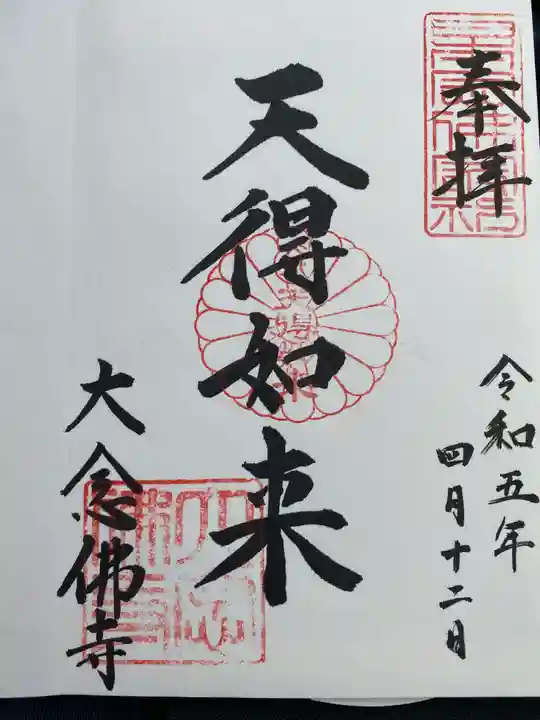 奉拝
令和五年
四月十二日
天得如来
大念佛寺